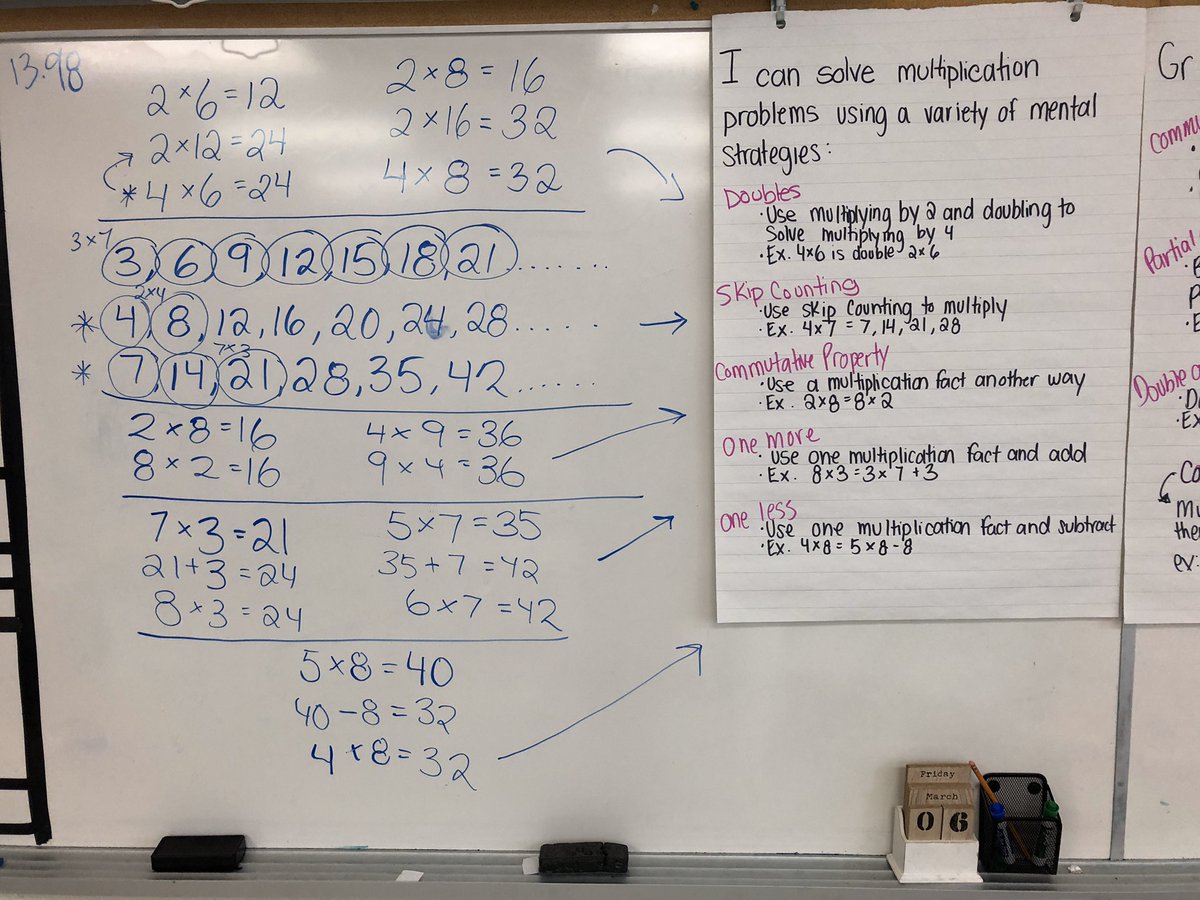 13.98
2×6=12
2×12=24
*4×6=24
2×8=16
2×16=32
4×8=32
3×7
3, 6, 9, 12, 15, 18, 21.......
2×4
* 4, 8, 12, 16, 20, 24, 28.....
7×3
* 7, 14, 21, 28, 35, 42......
2×8=16
8×2=16
4×9=36
9×4=36
7×3=21
21+3=24
8×3=24
5×7=35
35+7=42
6×7=42
5×8=40
40-8=32
4×8=32
I can solve multiplication
problems using a variety of mental
strategies:
Doubles
·Use multiplying by 2 and doubling to
Solve multiplying by 4
·Ex. 4×6 is double 2×6
Skip Counting
·Use skip counting to multiply
·Ex. 4×7=7, 14, 21, 28
Commutative Property
·Use a multiplication fact another way
·Ex. 2×8=8×2
One more
·Use one multiplication fact and add
·Ex. 8×3=3×7+3
One less
·Use one multiplication fact and subtract
·Ex. 4×8=5×8-8
Gr
Commu
Partial
·E
P
·E
Double a
·D
·Ex
Co
Mu
the
ex:
Friday
March
06